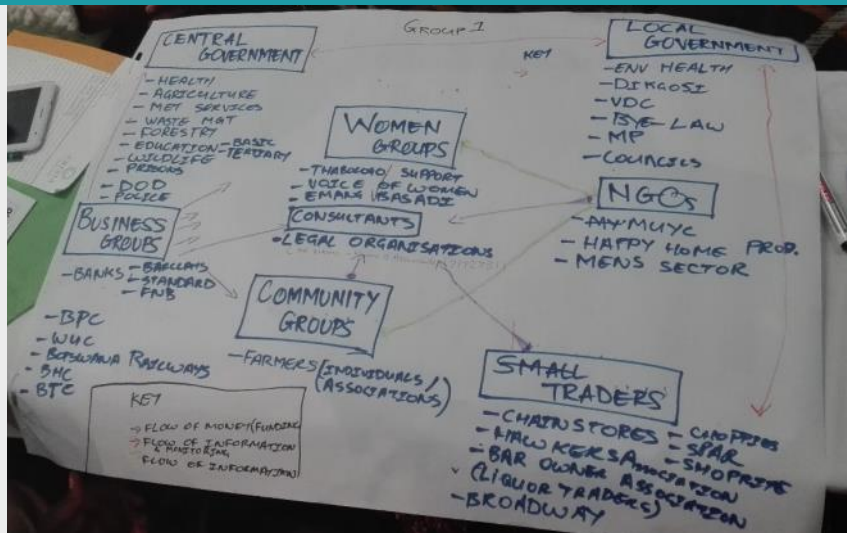 GROUP 1
CENTRAL
GOVERNMENT
- HEALTH
- AGRICULTURE
- MET SERVICES
- WASTE MGT
- FORESTRY
- EDUCATION - BASIC
- TERTIARY
- WILDLIFE
- PRISONS
- DOD
- POLICE
KEY
LOCAL
GOVERNMENT
- ENV HEALTH
- DIKGOSI
- VDC
- BYE-LAW
- MP
- COUNCILS
WOMEN
GROUPS
- SUPPORT
- VOICE OF WOMEN
- EMANG BASADI
CONSULTANTS
- LEGAL ORGANISATIONS
NGOs
- HAPPY HOME PROD.
- MENS SECTOR
BUSINESS
GROUPS
- BANKS - BARCLAYS
- STANDARD
- FNB
- BPC
- WUC
- BOTSWANA RAILWAYS
- BHC
- BTC
COMMUNITY
GROUPS
- FARMERS (INDIVIDUALS/
(ASSOCIATIONS)
SMALL
TRADERS
- CHAINSTORES - CHOPPIES
- SPAR
- SHOPRITE
- HAWKERS ASSOCIATION
- BAR OWNER ASSOCIATION
(LIQUOR TRADERS)
- BROADWAY
KEY
FLOW OF MONEY (FUNDING
FLOW OF INFORMATION
& MONITORING
FLOW OF INFORMATION